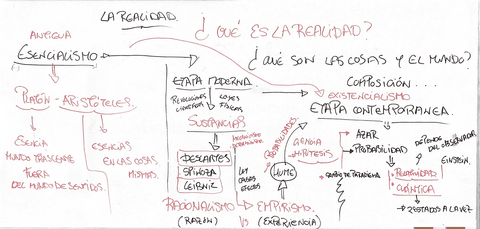 LA REALIDAD.
¿QUÉ ES LA REALIDAD?
ANTIGUA
ESENCIALISMO
¿QUÉ SON LAS COSAS Y EL MUNDO?
ETAPA MODERNA
COMPOSICIÓN...
EXISTENCIALISMO
ETAPA CONTEMPORANEA.
LEYES
FISICAS
SUSTANCIAS
PLATÓN - ARISTÓTELES
ESENCIA
MUNDO TRASCIENTE
FUERA
DEL MUNDO DE SENTIDOS.
ESENCIAS
EN LAS COSAS
MISMAS.
DESCARTES
SPINOZA
LEIBNIZ
CAUSAS
EFECTOS
PROBABILIDADES
HUME
CIENCIA
HIPÓTESIS
AZAR
PROBABILIDAD
DEPENDE
DEL OBSERVADOR
EINSTEIN.
RELATIVIDAD
CUÁNTICA
2 ESTADOS A LA VEZ
RACIONALISMO VS EMPIRISMO.
(RAZÓN)
(EXPERIENCIA)